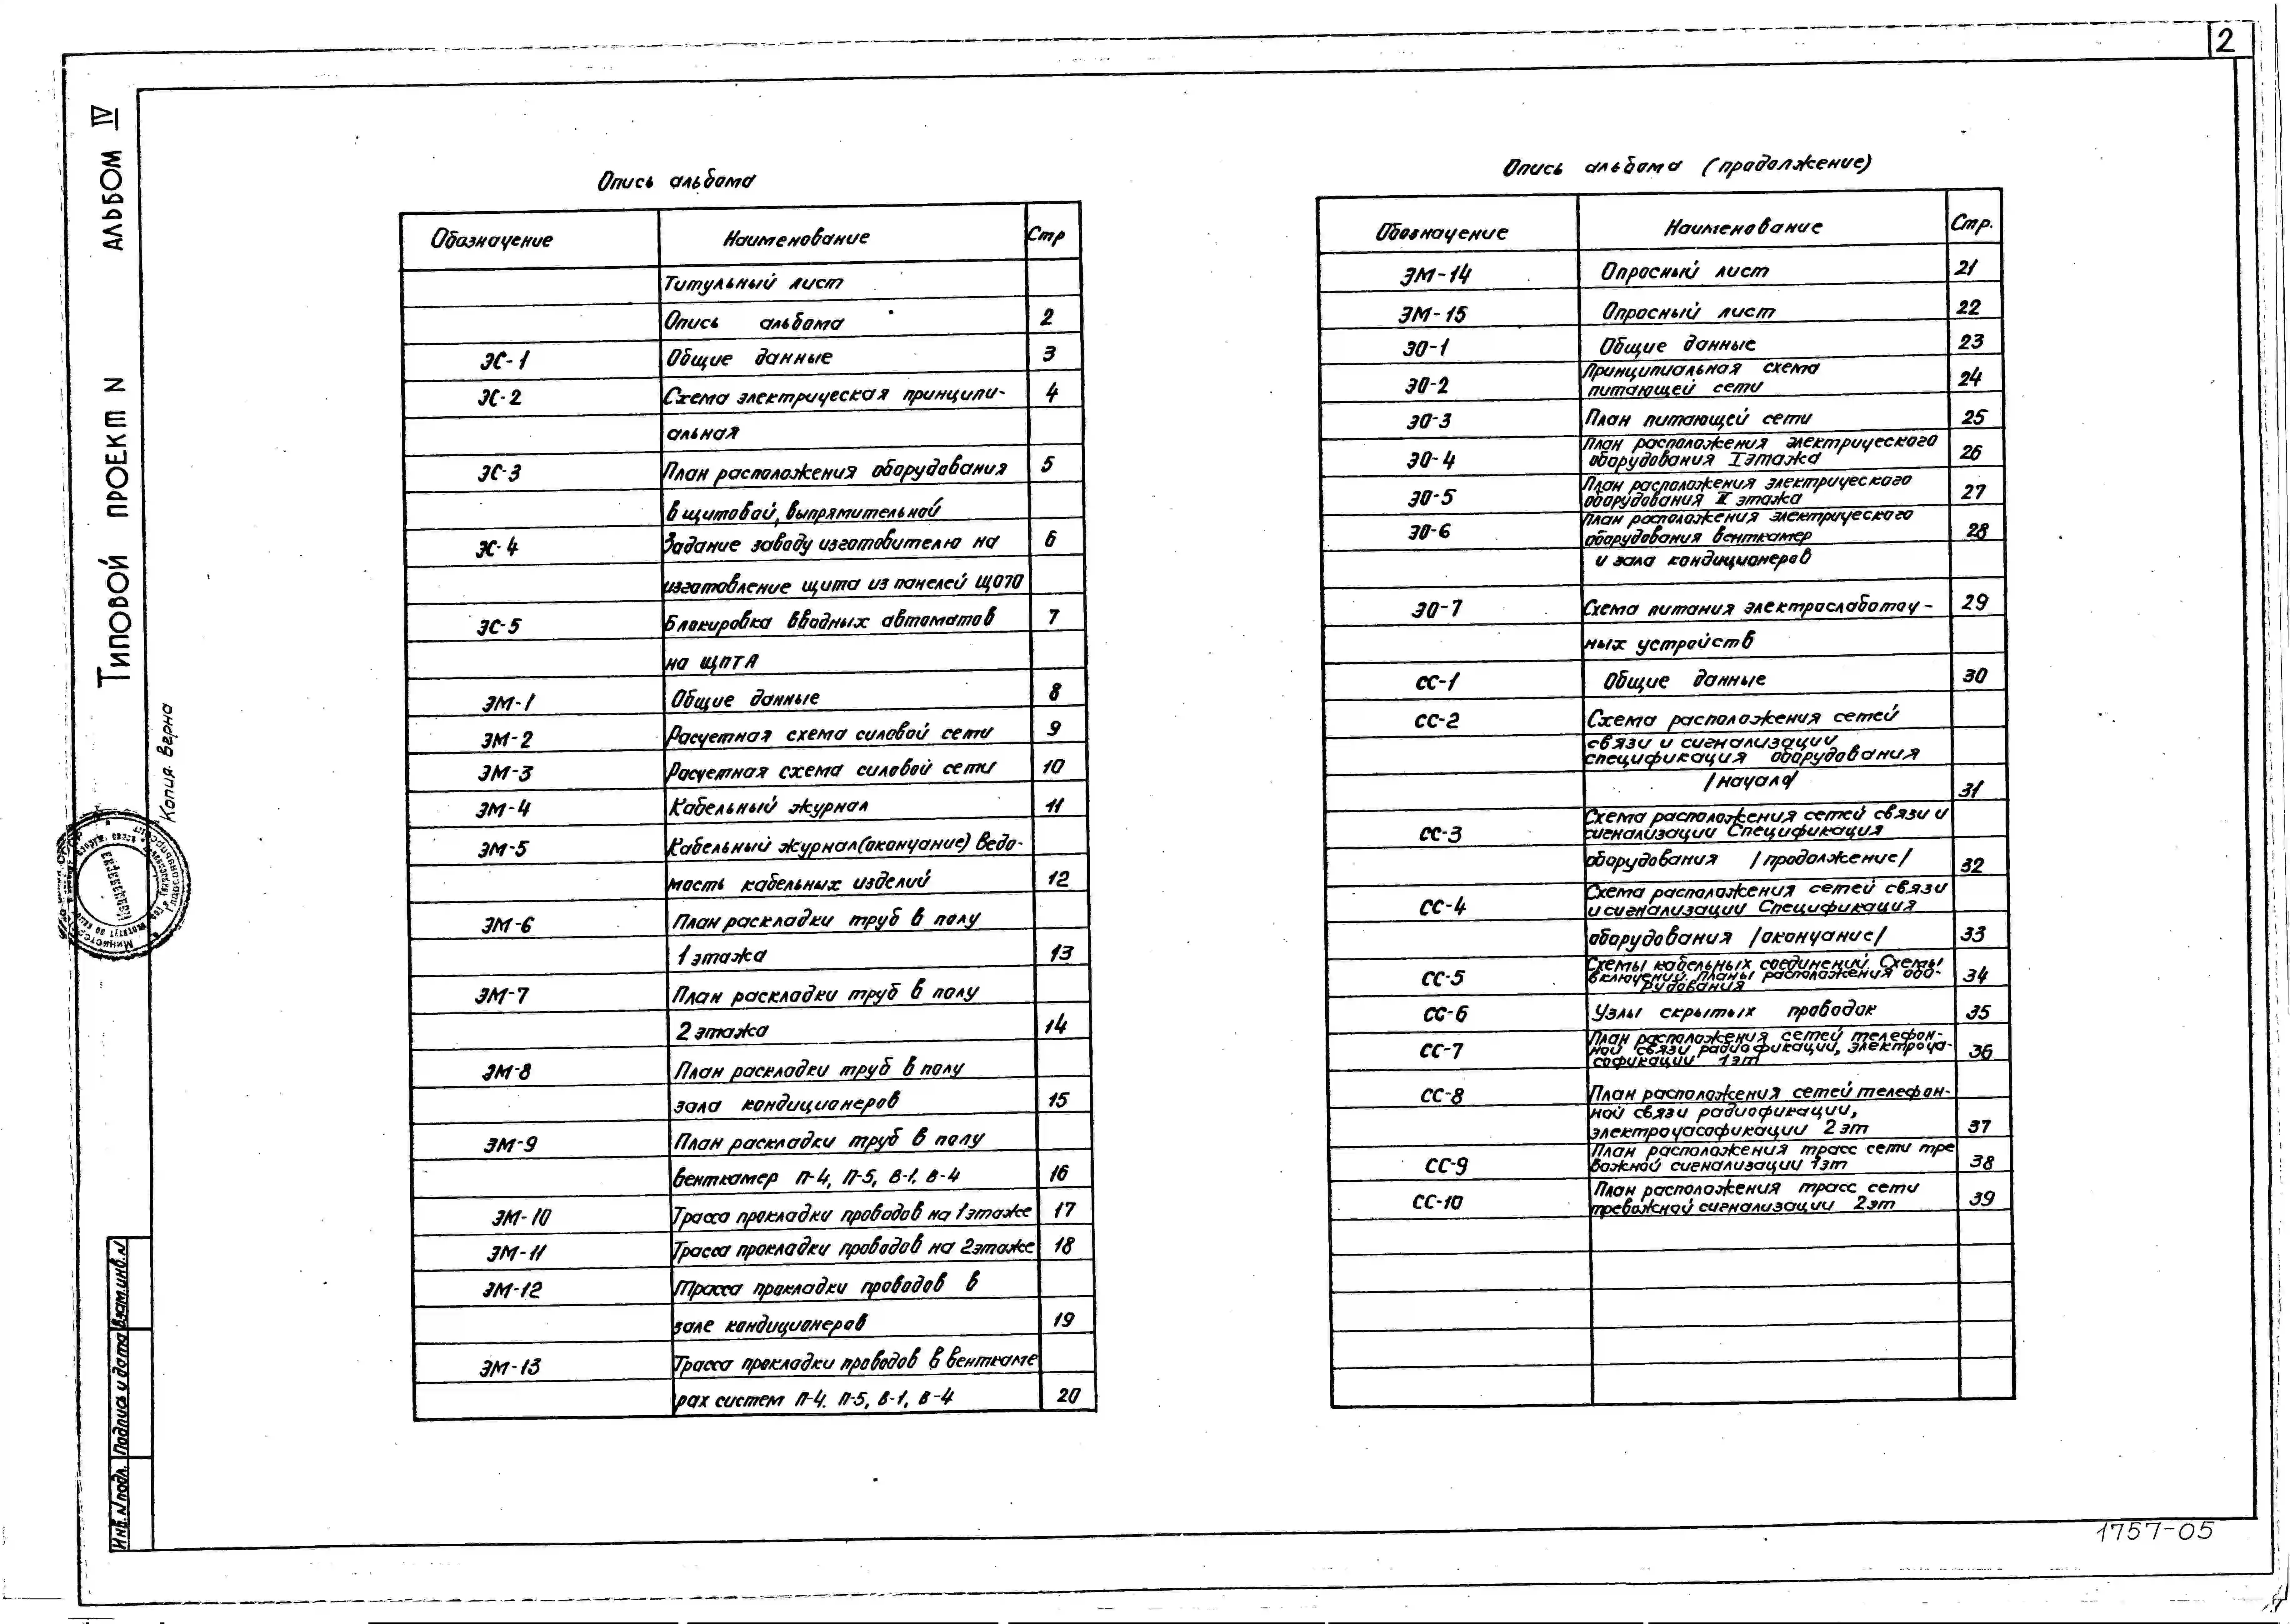 2
АЛЬБОМ IV
ТИПОВОЙ ПРОЕКТ N
Копия верна
Опись альбома
Обозначение Наименование Стр
Титульный лист
Опись альбома 2
ЭС-1 Общие данные 3
ЭС-2 Схема электрическая принципи- 4
альная
ЭС-3 План расположения оборудования 5
в щитовой, выпрямительной
ЭС-4 Задание заводу изготовителю на 6
изготовление щита из панелей ЩО70
ЭС-5 Блокировка вводных автоматов 7
на ЩПТА
ЭМ-1 Общие данные 8
ЭМ-2 Расчетная схема силовой сети 9
ЭМ-3 Расчетная схема силовой сети 10
ЭМ-4 Кабельный журнал 11
ЭМ-5 Кабельный журнал (окончание) Ведо-
мость кабельных изделий 12
ЭМ-6 План раскладки труб в полу
1 этажа 13
ЭМ-7 План раскладки труб в полу
2 этажа 14
ЭМ-8 План раскладки труб в полу
зала кондиционеров 15
ЭМ-9 План раскладки труб в полу
венткамер П-4, П-5, В-1, В-4 16
ЭМ-10 Трасса прокладки проводов на 1 этаже 17
ЭМ-11 Трасса прокладки проводов на 2 этаже 18
ЭМ-12 Трасса прокладки проводов в
зале кондиционеров 19
ЭМ-13 Трасса прокладки проводов в венткаме
рах систем П-4, П-5, В-1, В-4 20
Опись альбома (продолжение)
Обозначение Наименование Стр.
ЭМ-14 Опросный лист 21
ЭМ-15 Опросный лист 22
ЭО-1 Общие данные 23
ЭО-2 Принципиальная схема
питающей сети 24
ЭО-3 План питающей сети 25
ЭО-4 План расположения электрического
оборудования I этажа 26
ЭО-5 План расположения электрического
оборудования II этажа 27
ЭО-6 План расположения электрического
оборудования венткамер 28
и зала кондиционеров
ЭО-7 Схема питания электрослаботоч- 29
ных устройств
СС-1 Общие данные 30
СС-2 Схема расположения сетей
связи и сигнализации
спецификация оборудования
/начало/ 31
СС-3 Схема расположения сетей связи и
сигнализации Спецификация
оборудования /продолжение/ 32
СС-4 Схема расположения сетей связи
и сигнализации Спецификация
оборудования /окончание/ 33
СС-5 Схемы кабельных соединений. Схемы
включений, планы расположения обо-
рудования 34
СС-6 Узлы скрытых проводок 35
СС-7 План расположения сетей телефон-
ной связи радиофикации, электроча-
софикации 1эт 36
СС-8 План расположения сетей телефон-
ной связи радиофикации,
электрочасофикации 2 эт 37
СС-9 План расположения трасс сети тре
вожной сигнализации 1эт 38
СС-10 План расположения трасс сети
тревожной сигнализации 2эт 39
Инв. N подл. Подпись и дата Взам.инв.N
1757-05